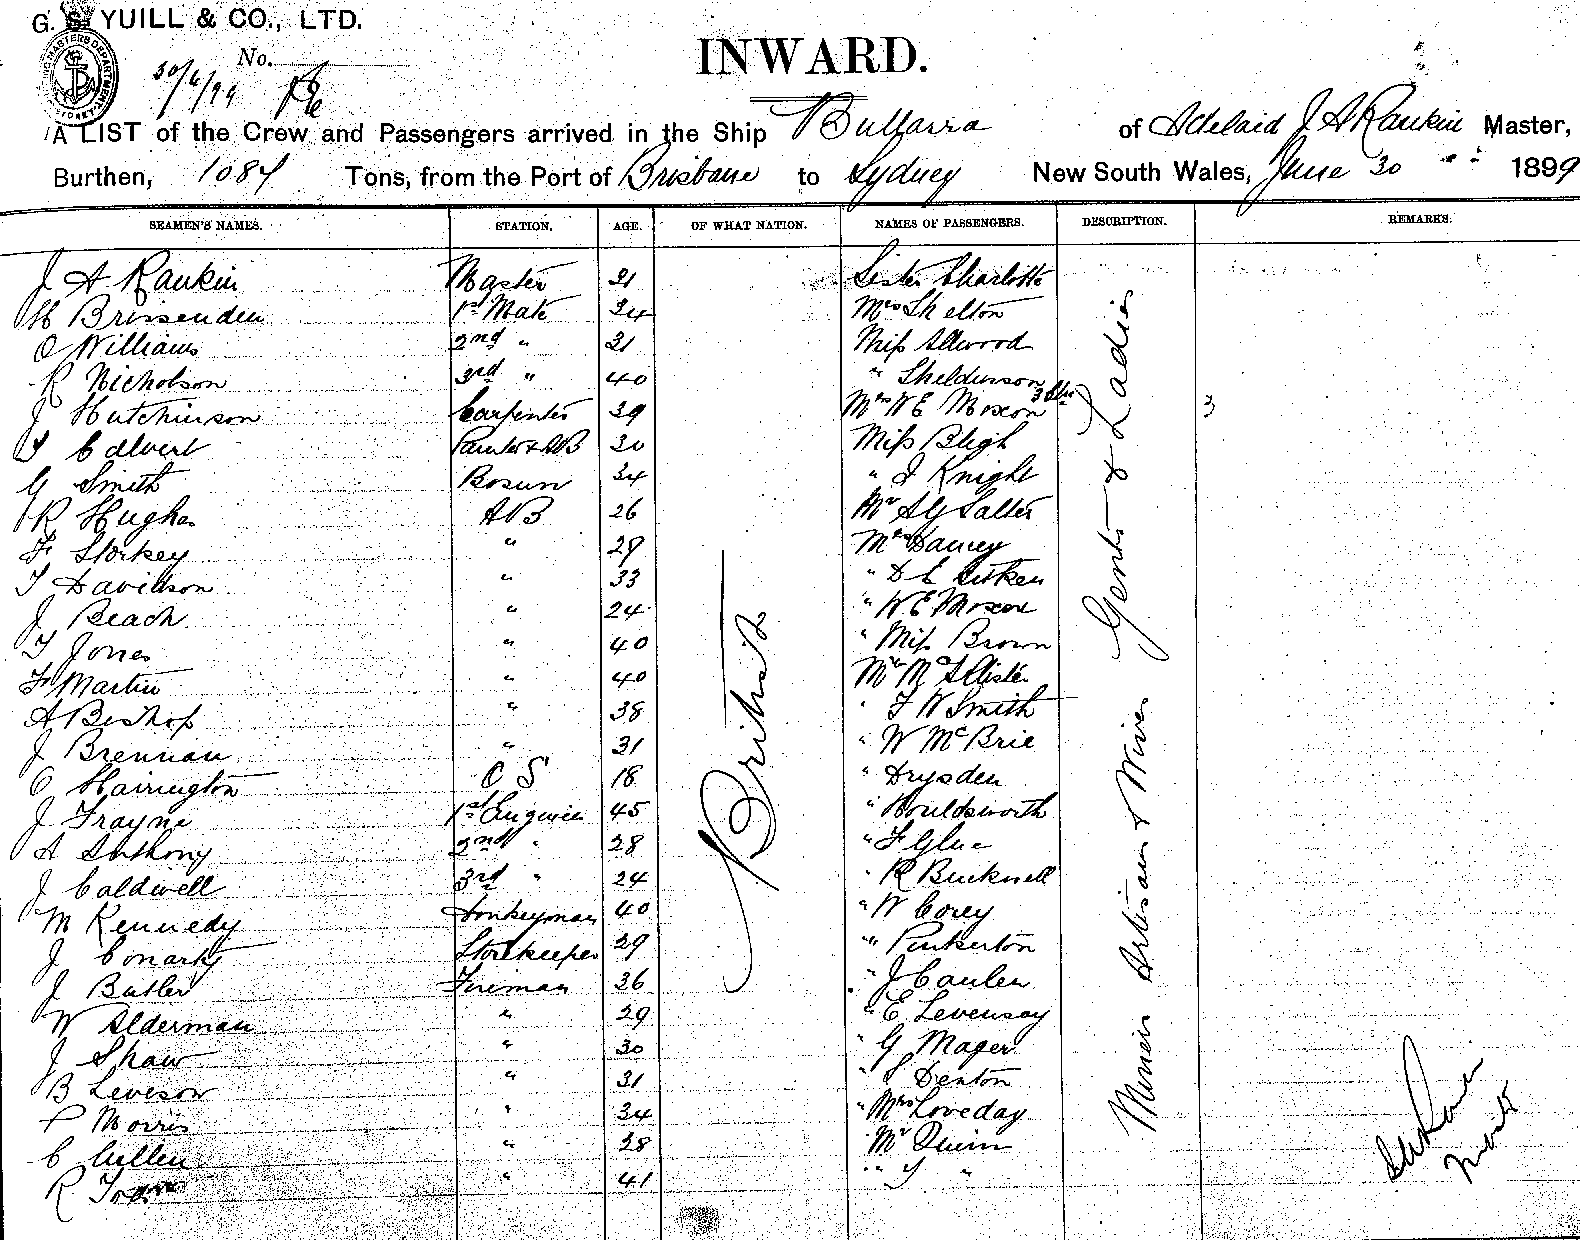 G. S. YUILL & CO., LTD.
No.
30/6/99
INWARD.
A LIST of the Crew and Passengers arrived in the Ship Bullarra of Adelaid J A Rankin Master,
Burthen, 1084 Tons, from the Port of Brisbane to Sydney New South Wales, June 30 1899
SEAMEN'S NAMES. STATION. AGE. OF WHAT NATION. NAMES OF PASSENGERS. DESCRIPTION. REMARKS.
J A Rankin Master 31 Sister Charlotte
H Brissenden 1st Mate 34 Mrs Shelton
O Williams 2nd " 31 Miss Allwood
R Nicholson 3rd " 40 " Sheldenson
J Hutchinson Carpenter 39 Mrs W E Moxon 3 3
T Calvert & AB 30 Miss Bligh
G Smith Bosun 34 " J Knight
R Hughes AB 26 Mr A G Salter
F Storkey " 29 Mr
T Davidson " 33 " D E Aitken
J Beach " 24 " W E Moxon
T Jones " 40 " Miss Brown
F Martin " 40 Mr McAllister
A Bishop " 38 " F W Smith
J Brennan " 31 " W McBrie
O Harrington O S 18 " Drysden
J Frayne 1st Engineer 45 " Houldsworth
A Anthony 2nd " 28 " F Glue
J Caldwell 3rd " 24 " R Bucknell
M Kennedy Donkeyman 40 " W Corey
J Conarty Storekeeper 29 " Pinkerton
J Butler Fireman 36 " J Caulen
W Alderman " 29 " E Levensay
J Shaw " 30 " G Mager
B Leveson " 31 " S Denton
P Morris " 34 " Mrs Loveday
C Cullen " 38 Mr Quinn
R " 41 " T "
British
Gents & Ladies
Miners Artisans & Wives